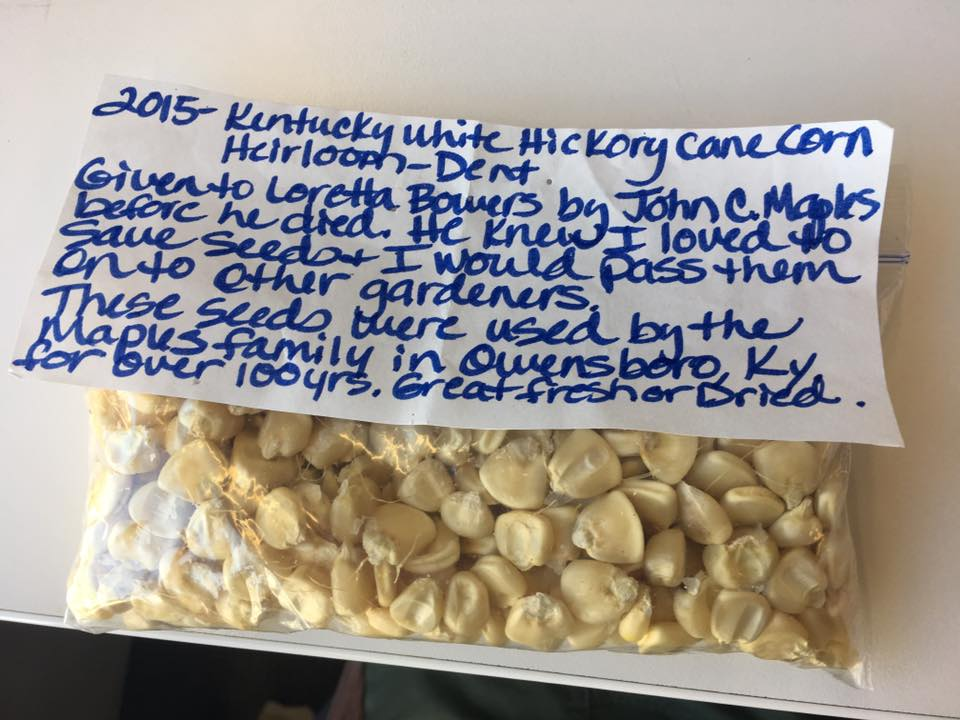 2015- Kentucky White Hickory Cane Corn
Heirloom-Dent
Given to Loretta Bowers by John C. Maples
before he died. He knew I loved to
save seeds + I would pass them
on to other gardeners.
These seeds were used by the
Maples family in Owensboro, Ky
for over 100yrs. Great fresh or Dried.